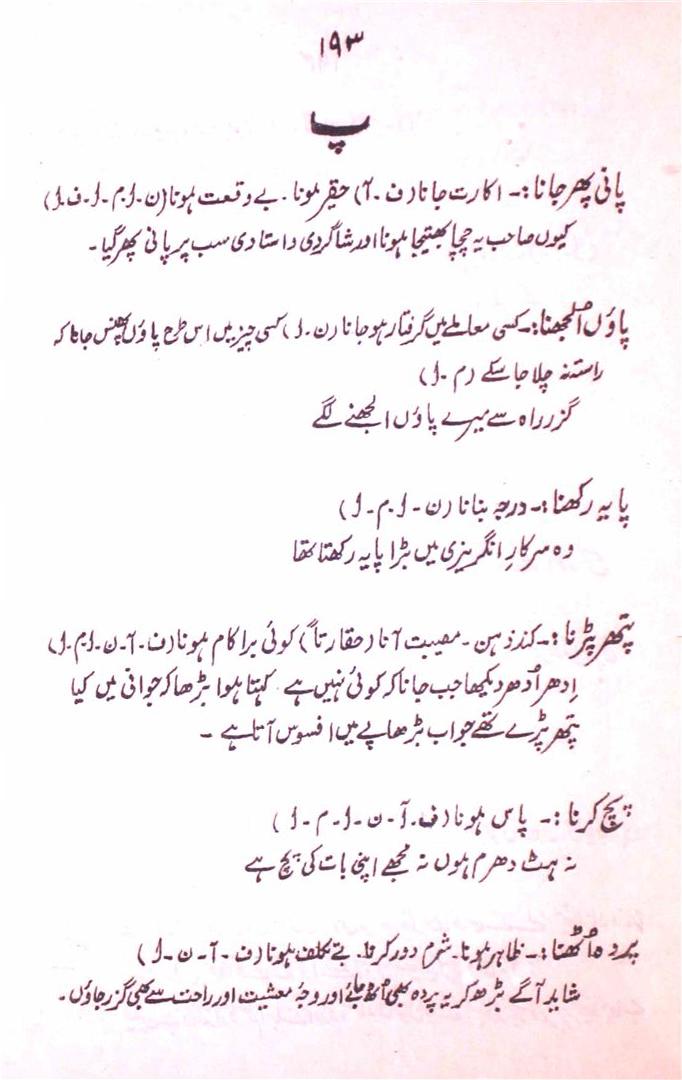 ۱۹۳
پ
پانی پھر جانا:۔ اکارت جانا (ف۔آ) حقیر ہونا۔ بے وقعت ہونا (ن۔ا۔م۔ا۔ف۔ا)
کیوں صاحب یہ چچا بھتیجا ہونا اور شاگردی و استادی سب پر پانی پھر گیا۔
پاؤں اُلجھنا:۔ کسی معاملے میں گرفتار ہو جانا (ن۔ا) کسی چیز میں اس طرح پاؤں پھنس جانا کہ
راستہ نہ چلا جا سکے (م۔ا)
گزر راہ سے میرے پاؤں الجھنے لگے
پایہ رکھنا:۔ درجہ بنانا (ن۔ا۔م۔ا)
وہ سرکارِ انگریزی میں بڑا پایہ رکھتا تھا
پتھر پڑنا:۔ کند ذہن۔ مصیبت آنا (حقارتاً) کوئی برا کام ہونا (ف۔آ۔ن۔ا۔م۔ا)
اِدھر اُدھر دیکھا جب جانا کہ کوئی نہیں ہے کہتا ہوا بڑھا کہ جوانی میں کیا
پتھر پڑے تھے جو اب بڑھاپے میں افسوس آتا ہے۔
پچ کرنا:۔ پاس ہونا (ف۔آ۔ن۔ا۔م۔ا)
نہ ہٹ دھرم ہوں نہ مجھے اپنی بات کی پچ ہے
پردہ اُٹھنا:۔ ظاہر ہونا۔ شرم دور کرنا۔ بے تکلف ہونا (ف۔آ۔ن۔ا)
شاید آگے بڑھ کر یہ پردہ بھی اُٹھ جائے اور وجہ معشیت اور راحت سے بھی گزر جاؤں۔